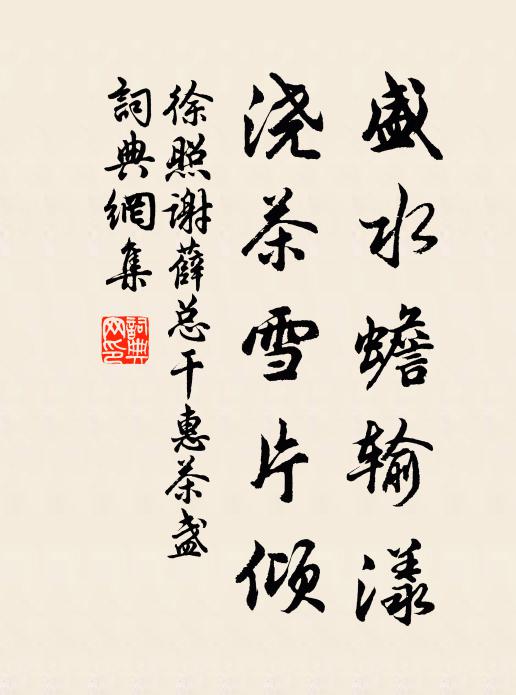 盛水蟾输漾
浇茶雪片倾
徐照谢薛总干惠茶盏
詞典網集
詞典网印